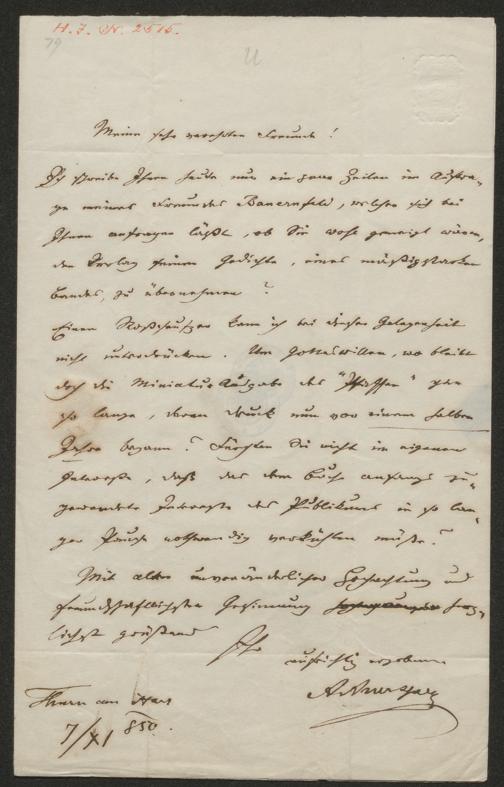 H. I. N. 2515.
79
Meine sehr verehrten Freunde!
Ich schreibe Ihnen heute nur ein paar Zeilen im Auftra-
ge meines Freundes Bauernfeld, welcher sich bei
Ihnen anfragen läßt, ob Sie wohl geneigt wären,
den Verlag seiner Gedichte, eines mäßigstarken
Bandes, zu übernehmen?
Einen Stoßseufzer kann ich bei dieser Gelegenheit
nicht unterdrücken. Um Gotteswillen, wo bleibt
doch die Miniatur Ausgabe des "Pfaffen" gar
so lange, deren Druck nun vor einem halben
Jahre begann? Fürchten Sie nicht im eigenen
Interesse, daß das dem Buch anfangs zu-
gewendete Interesse des Publikums in so lan-
ger Pause nothwendig verkühlen müße?
Mit alter unveränderlicher Hochachtung und
freundschaftlichster Gesinnung herz-
lichst grüßend
Ihr
aufrichtig ergebener
AAuersperg
Thurn am Hart
7/XI 850.